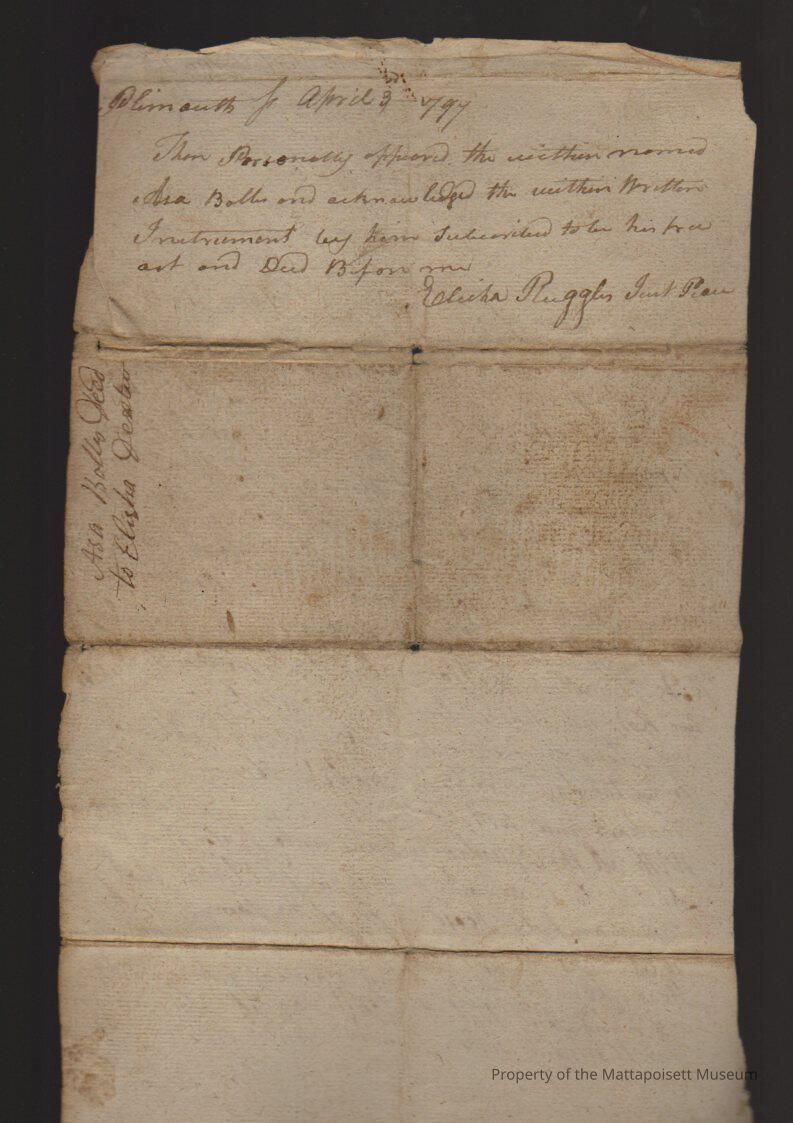 Plimouth ss April 3d 1797
Then Personally appeared the within named
Asa Bolls and acknowledged the within Written
Instrument by him Subscribed to be his free
act and Deed Before me
Elisha Ruggles Just Peace
Asa Bolls Deed
to Elisha Dexter
Property of the Mattapoisett Museum